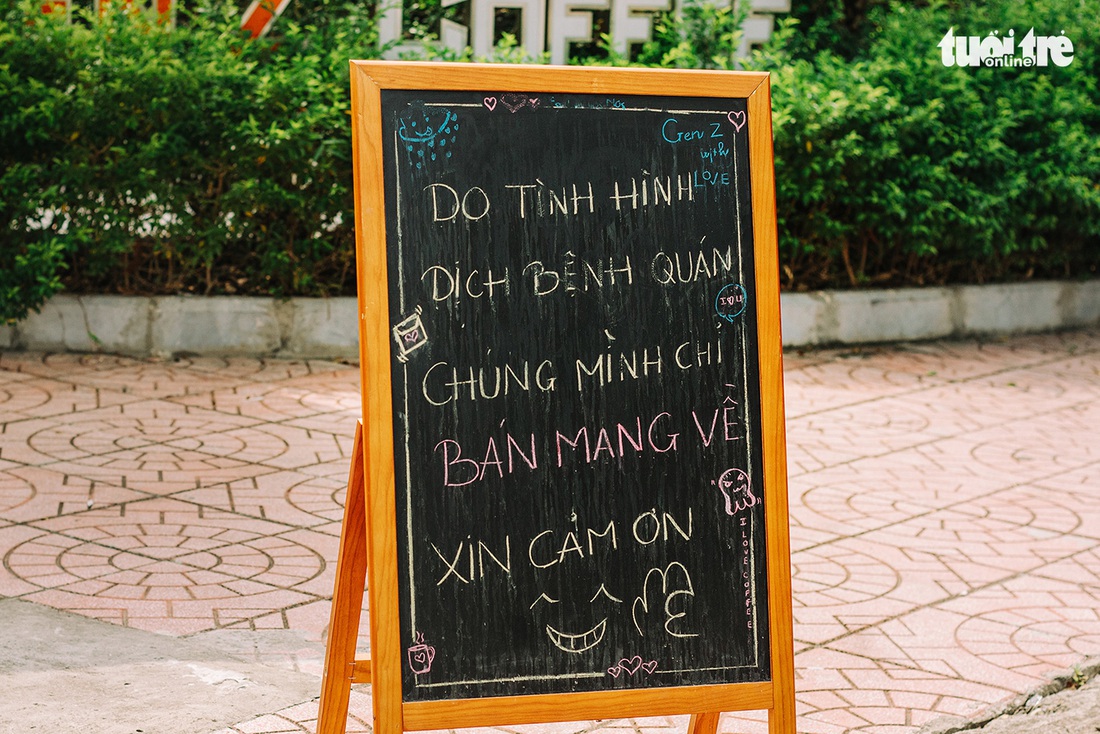 COFFEE
tuổi trẻ
online
Gen Z
with
LOVE
DO TÌNH HÌNH
DỊCH BỆNH QUÁN
I ♥ U
CHÚNG MÌNH CHỈ
BÁN MANG VỀ
XIN CẢM ƠN
I LOVE COFFEE